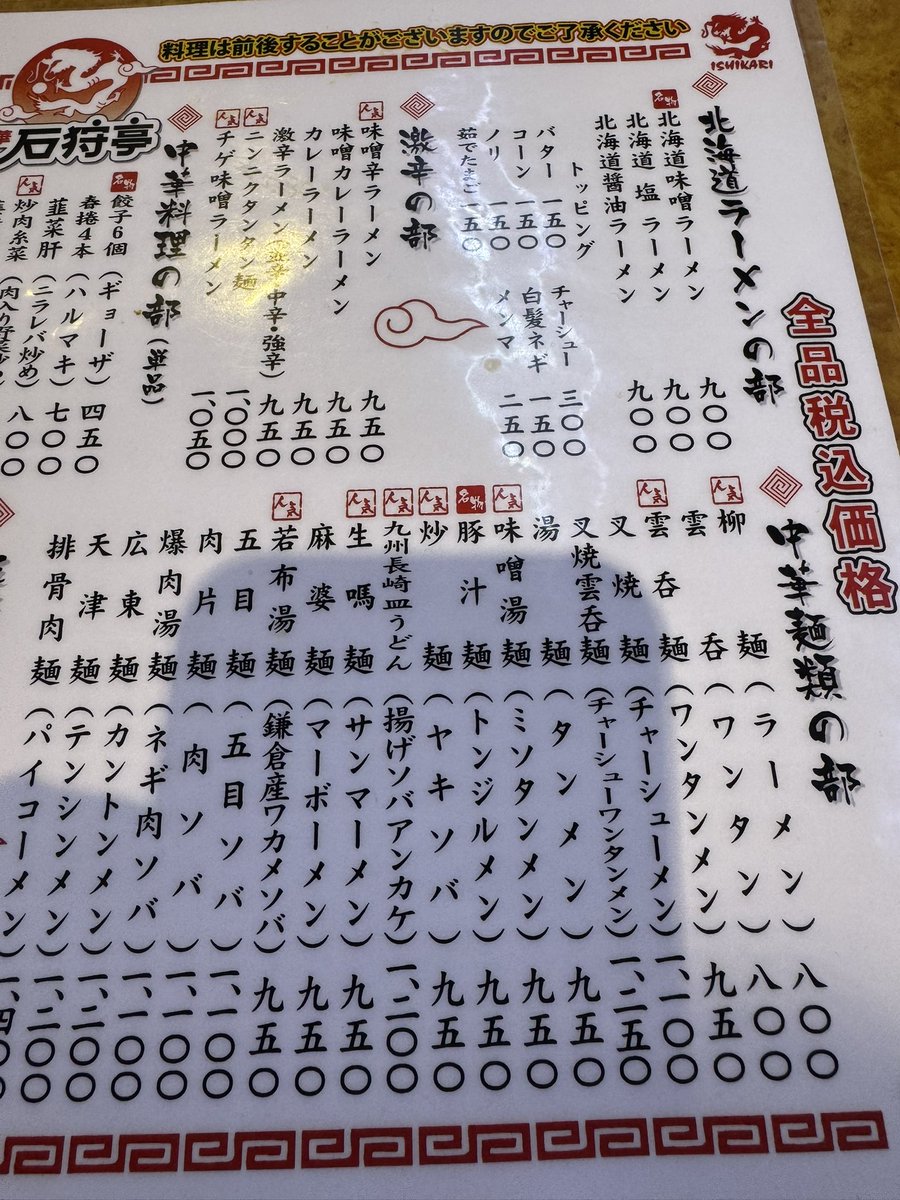 料理は前後することがございますのでご了承ください
ISHIKARI
石狩亭
全品税込価格
北海道ラーメンの部
名物 北海道味噌ラーメン 九〇〇
北海道 塩 ラーメン 九〇〇
北海道醤油ラーメン 九〇〇
トッピング
バター 一五〇
コーン 一五〇
ノリ 一五〇
茹でたまご 一五〇
チャーシュー 三〇〇
白髪ネギ 一五〇
メンマ 二五〇
激辛の部
人気 味噌辛ラーメン 九五〇
味噌カレーラーメン 九五〇
カレーラーメン 九五〇
激辛ラーメン(並辛・中辛・強辛) 九五〇
人気 ニンニクタンタン麺 一、〇〇〇
人気 チゲ味噌ラーメン 一、〇五〇
中華料理の部(単品)
名物 餃子6個(ギョーザ) 四五〇
春捲4本(ハルマキ) 七〇〇
韮菜肝(ニラレバ炒め) 八〇〇
人気 炒肉糸菜
中華麺類の部
人気 柳麺(ラーメン) 八〇〇
雲呑(ワンタン) 八〇〇
人気 雲呑麺(ワンタンメン) 九五〇
叉焼麺(チャーシューメン) 一、一〇〇
叉焼雲呑麺(チャーシューワンタンメン) 一、二五〇
湯麺(タンメン) 九五〇
人気 味噌湯麺(ミソタンメン) 九五〇
名物 豚汁麺(トンジルメン) 九五〇
人気 炒麺(ヤキソバ) 九五〇
人気 九州長崎皿うどん(揚げソバアンカケ) 一、二〇〇
人気 生嗎麺(サンマーメン) 九五〇
麻婆麺(マーボーメン) 九五〇
人気 若布湯麺(鎌倉産ワカメソバ) 九五〇
五目麺(五目ソバ) 一、一〇〇
肉片麺(肉ソバ) 一、一〇〇
爆肉湯麺(ネギ肉ソバ) 一、一〇〇
広東麺(カントンメン) 一、二〇〇
天津麺(テンシンメン) 一、二〇〇
排骨肉麺(パイコーメン) 一、四〇〇